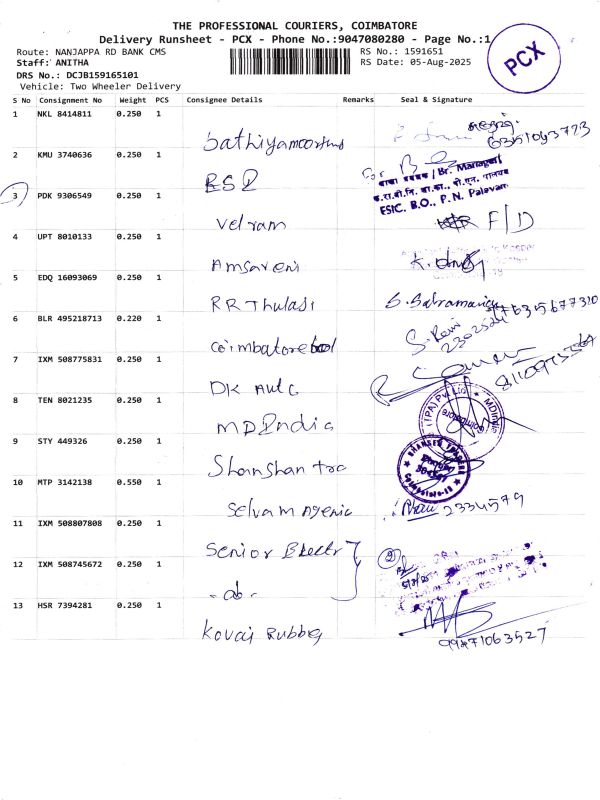 THE PROFESSIONAL COURIERS, COIMBATORE
Delivery Runsheet - PCX - Phone No.:9047080280 - Page No.:1
Route: NANJAPPA RD BANK CMS
RS No.: 1591651
Staff: ANITHA
RS Date: 05-Aug-2025
DRS No.: DCJB159165101
Vehicle: Two Wheeler Delivery
PCX
S No Consignment No Weight PCS Consignee Details Remarks Seal & Signature
1 NKL 8414811 0.250 1
Sathiyamoorthy
2 KMU 3740636 0.250 1
ESI
For
शाखा प्रबंधक / Br. Manager
ESIC. B.O., P.N. Palayam
3 PDK 9306549 0.250 1
Velram F/D
4 UPT 8010133 0.250 1
Amsaveni
5 EDQ 16093069 0.250 1
RR Thulasi
6 BLR 495218713 0.220 1
Coimbatore
2302524
7 IXM 508775831 0.250 1
DK Auto
8 TEN 8021235 0.250 1
MD India
(TPA) Pvt Ltd MDIndia Coimbatore
9 STY 449326 0.250 1
Shanshan tra
10 MTP 3142138 0.550 1
Selvam Agenic 2334579
11 IXM 508807808 0.250 1
Senior Electr
12 IXM 508745672 0.250 1
- do -
2
13 HSR 7394281 0.250 1
Kovai Rubber